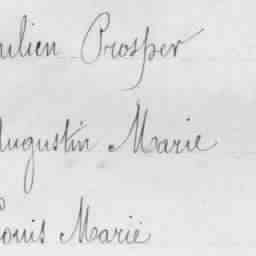 ulien Prosper
Augustin Marie
Louis Marie